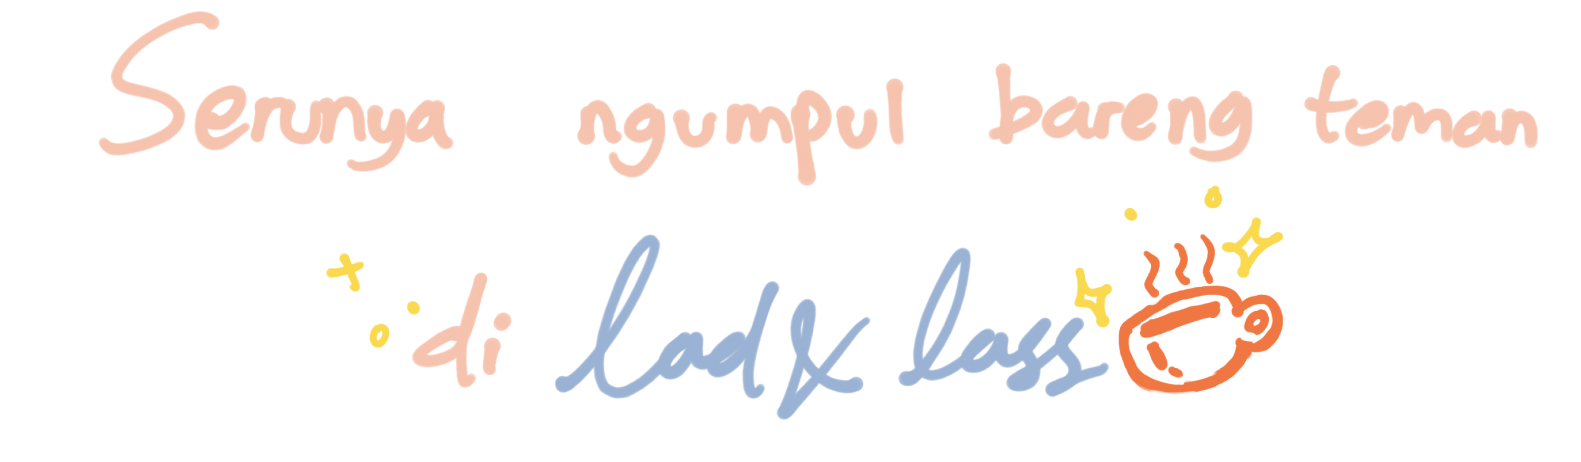 Serunya ngumpul bareng teman
di lad & lass